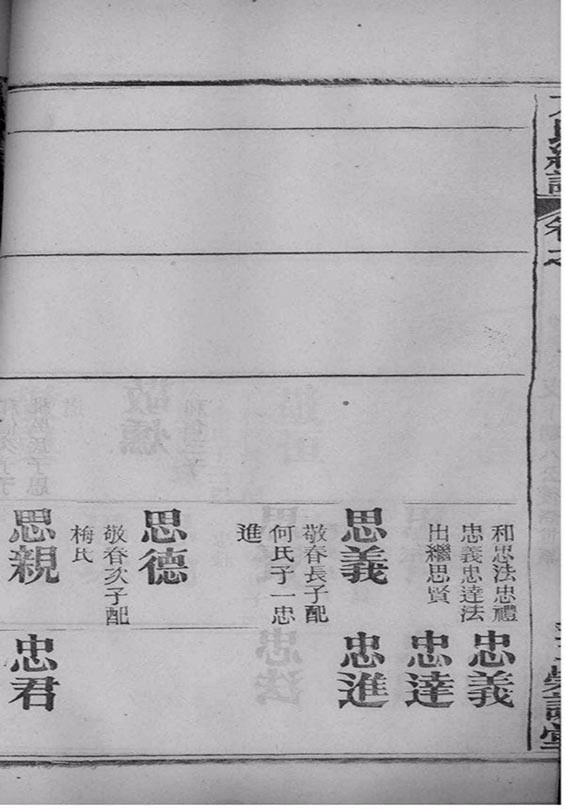 卷之
和忠法忠禮
忠義忠達法
出繼思賢
忠義
忠達
思義
敬春長子配
何氏子一忠
進
忠進
思德
敬春次子配
梅氏
思親
忠君